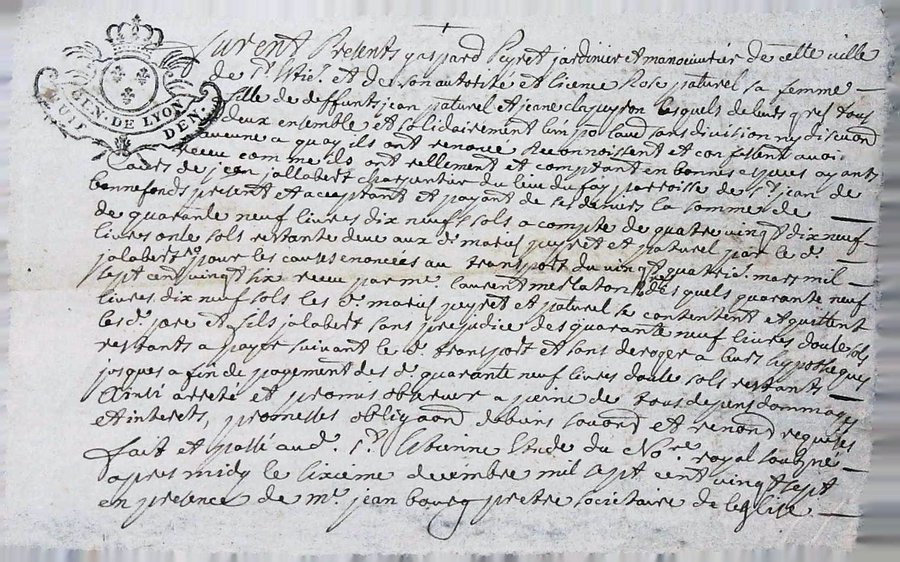 GEN. DE LYON
DEN.
furent Presents gaspard Peyret jardinier et manoeuvrier de cette ville
de St. Etie. et de son autorité et licence Rose paturel sa femme
fille de deffunts jean paturel et jeane clapeyron lesquels de leurs gres tous
deux ensemble et solidairement l'un po. l'autre sans division ny discution
aucune a quoy ils ont renoncé Reconnoissent et confessent avoir
Receu comme ils ont réellement et comptant en bonnes especes ayants
cours de jean jallabert charpentier du lieu du fay parroisse de St. jean de
bonnefonds present et acceptant et payant de ses deniers la somme de
de quarante neuf livres dix neuf sols a compte de quatre vingt dix neuf
livres onse sols restante deue aux d. mariés peyret et paturel par le d.
jalabert po. pour les causes enoncées au transport du vingt quatrie. mars mil
sept cent vingt six receu par me. laurent meslaton desquels quarante neuf
livres dix neuf sols les d. mariés peyret et paturel se contentent et quittent
les d. pere et fils jalabert sans prejudice des quarante neuf livres douse sols
restants a payer suivant le d. transport et sans deroger a leurs hypotheques
jusques a fin de payement des d. quarante neuf livres douse sols restants
Ainsi arresté et promis observer a peine de tous depens dommages
et interets, promesses obligaon. de biens soumon. et renon. requises
fait et passé aud. St. Etienne Etude du Nore. royal soubzné
apres midy le sixieme decembre mil sept cent vingt sept
en presence de me. jean bourg pretre societaire de leglise